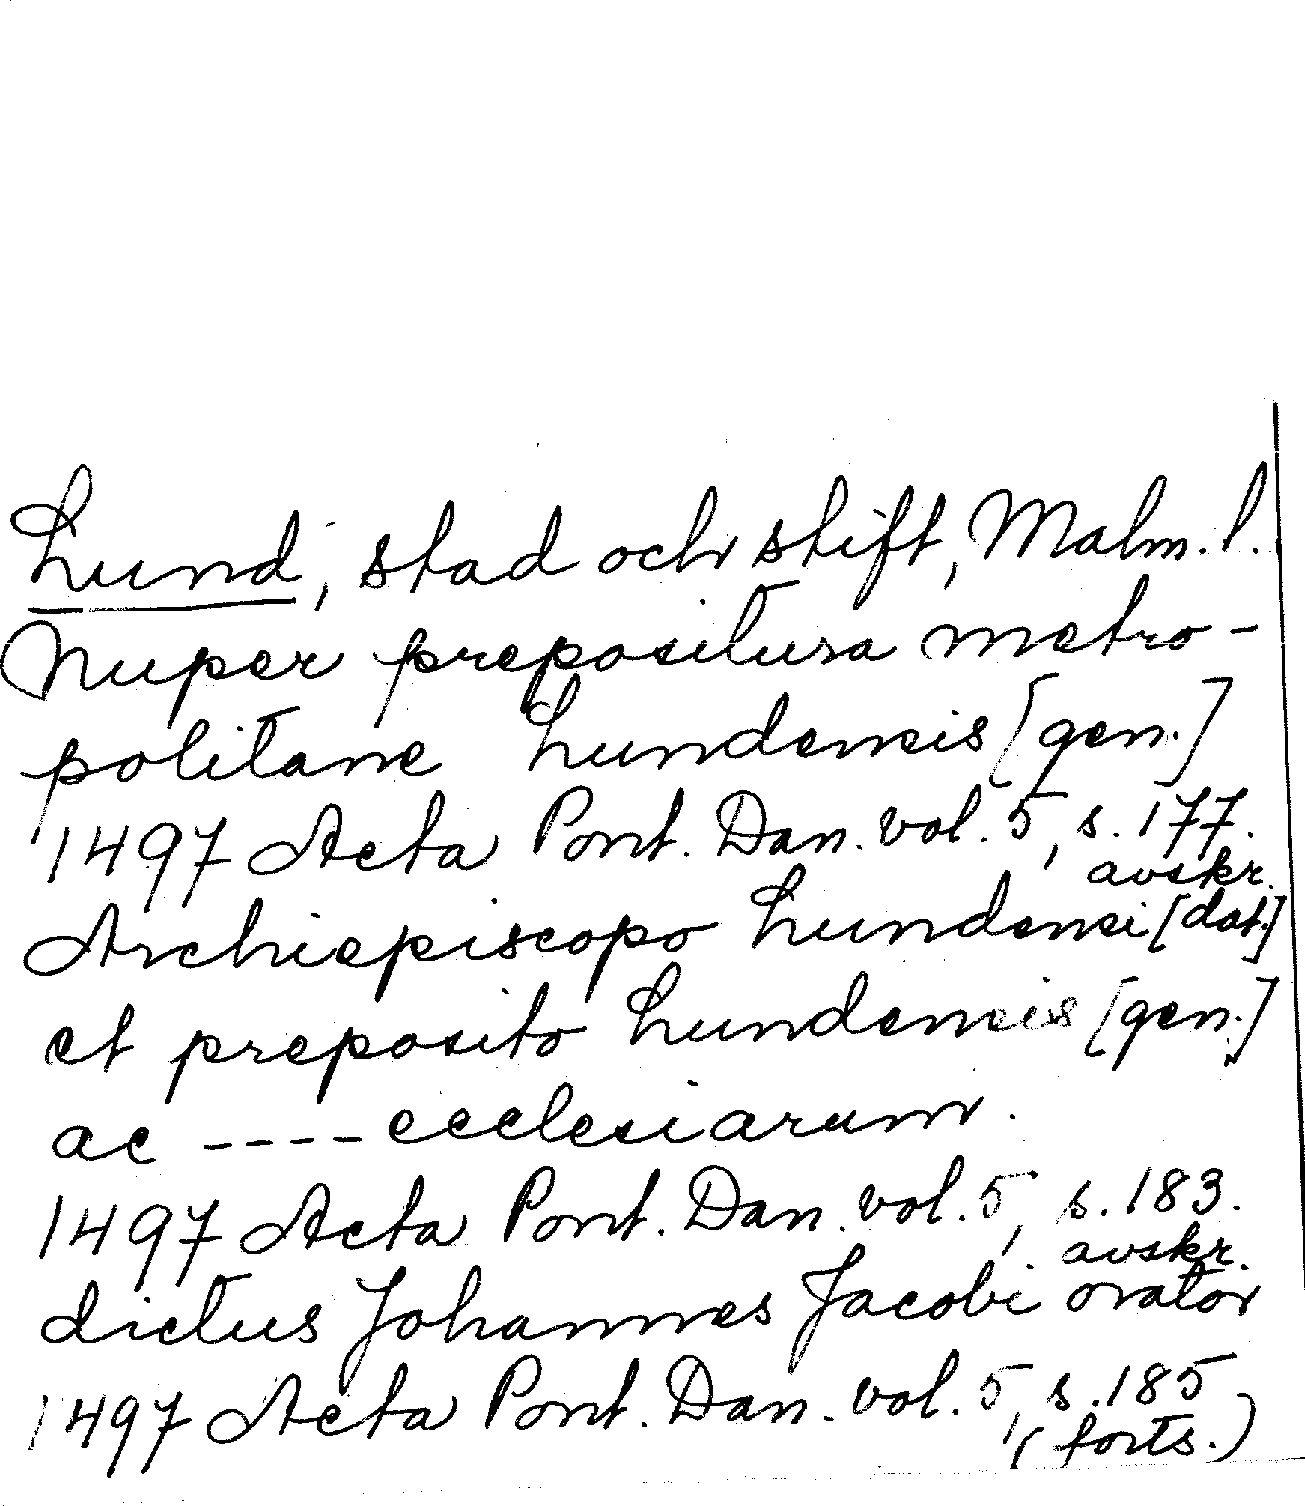 Lund, stad och stift, Malm. l.
Nuper prepositura metro-
politane Lundensis [gen.]
1497 Acta Pont. Dan. vol. 5, s. 177.
avskr.
Archiepiscopo Lundensi [dat.]
et preposito Lundensis [gen.]
ac ---- ecclesiarum.
1497 Acta Pont. Dan. vol. 5, s. 183.
avskr.
dictus Johannes Jacobi orator
1497 Acta Pont. Dan. vol. 5, s. 185
(forts.)